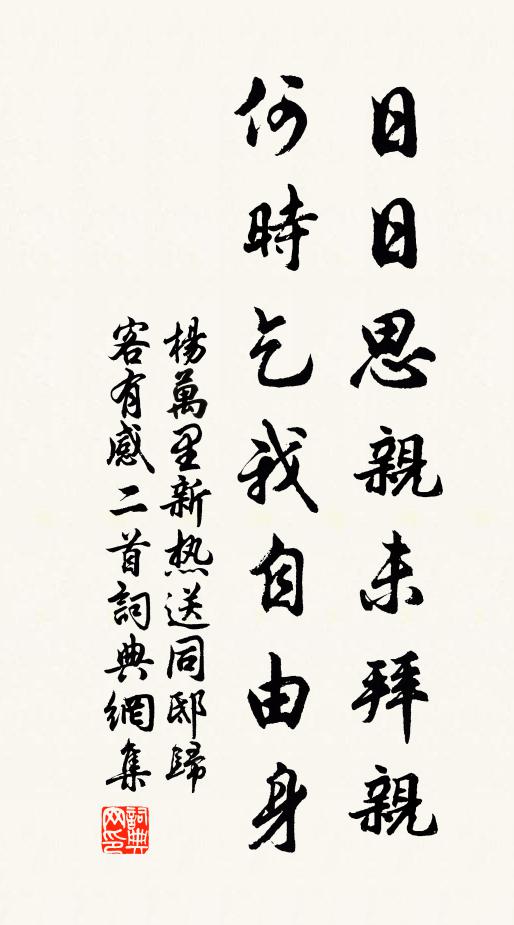 日日思親未拜親
何時乞我自由身
楊萬里新热送同邸歸
客有感二首詞典網集
詞典
网印